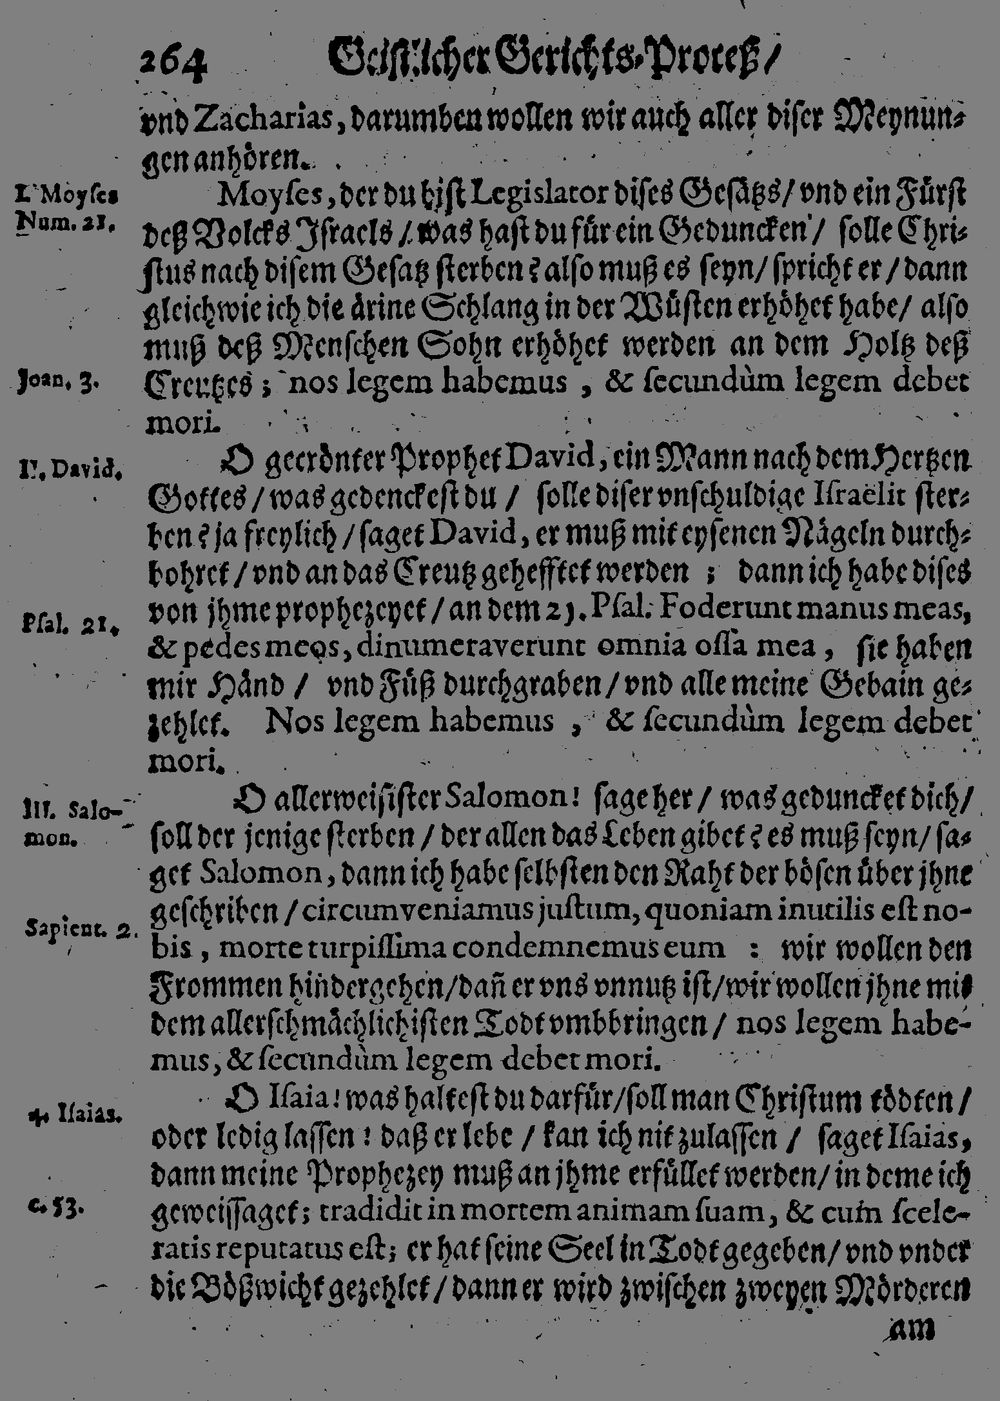 264 Geistlicher Gerichts-Proceß/
vnd Zacharias, darumben wollen wir auch aller diser Meynun-
gen anhören.
I. Moyses
Num. 21.
Moyses, der du bist Legislator dises Gesätzs/ vnd ein Fürst
deß Volcks Israels / was hast du für ein Geduncken / solle Chri-
stus nach disem Gesatz sterben? also muß es seyn/ spricht er / dann
gleichwie ich die ärine Schlang in der Wüsten erhöhet habe/ also
muß deß Menschen Sohn erhöhet werden an dem Holtz deß
Joan. 3.
Creutzes; nos legem habemus, & secundùm legem debet
mori.
II. David.
O gecrönter Prophet David, ein Mann nach dem Hertzen
Gottes / was gedenckest du / solle diser vnschuldige Israëlit ster-
ben? ja freylich / saget David, er muß mit eysenen Nägeln durch-
bohret / vnd an das Creutz gehefftet werden ; dann ich habe dises
Psal. 21.
von jhme prophezeyet / an dem 21. Psal. Foderunt manus meas,
& pedes meos, dinumeraverunt omnia ossa mea, sie haben
mir Händ / vnd Füß durchgraben / vnd alle meine Gebain ge-
zehlet. Nos legem habemus, & secundùm legem debet
mori.
III. Salo-
mon.
O allerweisister Salomon! sage her / was geduncket dich/
soll der jenige sterben / der allen das Leben gibet? es muß seyn/ sa-
get Salomon, dann ich habe selbsten den Raht der bösen über jhne
geschriben / circumveniamus justum, quoniam inutilis est no-
Sapient. 2.
bis, morte turpissima condemnemus eum : wir wollen den
Frommen hindergehen/dañ er vns vnnutz ist/wir wollen jhne mit
dem allerschmächlichisten Todt vmbbringen / nos legem habe-
mus, & secundùm legem debet mori.
4. Isaias.
O Isaia! was haltest du darfür/soll man Christum tödten /
oder ledig lassen ? daß er lebe / kan ich nit zulassen / saget Isaias,
dann meine Prophezey muß an jhme erfüllet werden/ in deme ich
c. 53.
geweissaget; tradidit in mortem animam suam, & cum scele-
ratis reputatus est; er hat seine Seel in Todt gegeben/ vnd vnder
die Bößwicht gezehlet / dann er wird zwischen zweyen Mörderen
am